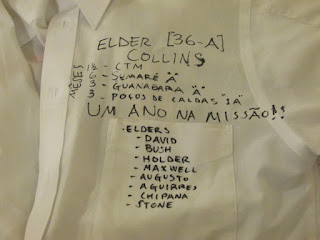 ELDER [36-A]
COLLINS
MESES
1½ - CTM
6 - SUMARÉ "A"
3 - GUANABARA "A"
3 - POÇOS DE CALDAS "1A"
UM ANO NA MISSÃO!!
•ELDERS
- DAVID
- BUSH
- HOLDER
- MAXWELL
- AUGUSTO
- AGUIRRES
- CHIPANA
- STONE